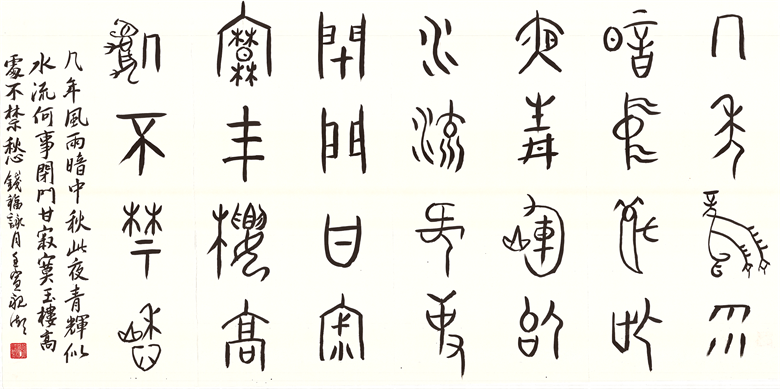 几年風雨
暗中秋此
夜青輝似
水流何事
閉門甘寂
寞玉樓高
處不禁愁
几年風雨暗中秋此夜青輝似
水流何事閉門甘寂寞玉樓高
處不禁愁 錢福詠月 壬寅